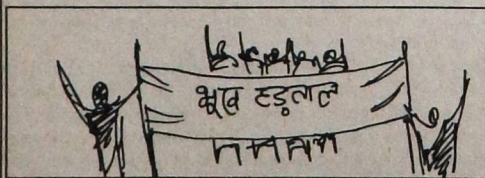 भूख हड़ताल